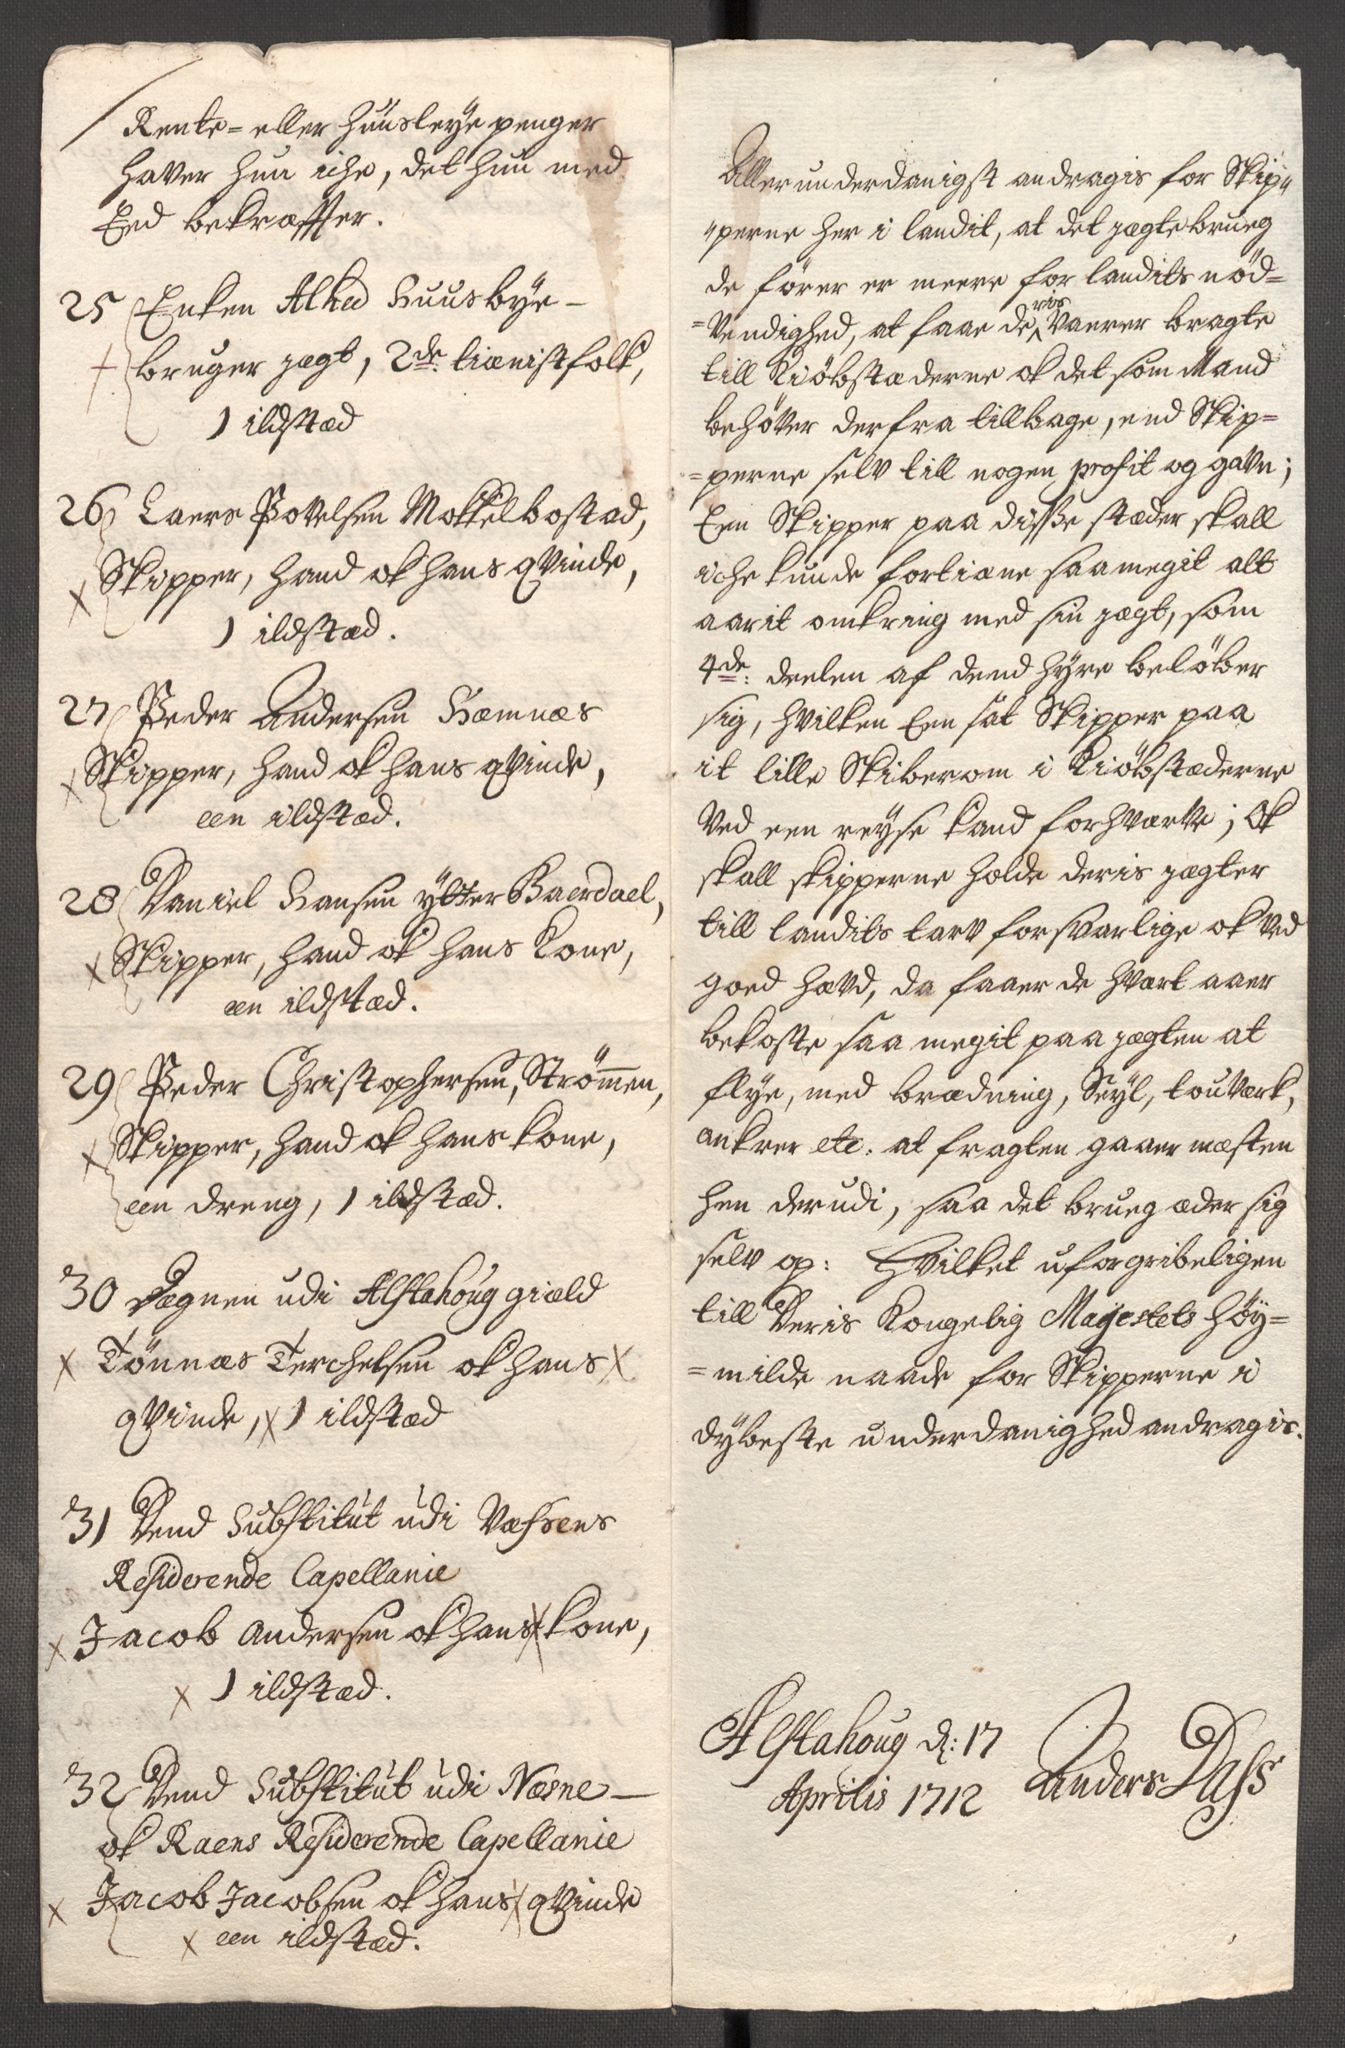 Rente- eller huusleye penger
haver hun iche, det hun med
Eed bekræffter.
25 Enken Alhed Huusbye -
+ bruger jægt, 2de tienistfolk,
1 ildstæd
26 Laers Povelsen Mokkelbostad,
x Skipper, hand ok hans qvinde,
1 ildstæd.
27 Peder Andersen Hæmnæs
x Skipper, hand ok hans qvinde,
een ildstæd.
28 Daniel Hansen ytter Baerdael,
x Skipper, hand ok hans Kone,
een ildstæd.
29 Peder Christophersen, Strømen,
x Skipper, hand ok hans kone,
een dreng, 1 ildstæd.
30 Dægnen udi Alstahoug giæld
x Tønnæs Terchelsen ok hans x
qvinde, x 1 ildstæd
31 Dend Substitut udi Vefsens
Residerende Capellanie
x Jacob Andersen ok hans x kone,
x 1 ildstæd.
32 Dend Substitut udi Næsne-
ok Raens Residerende Capellanie
x Jacob Jacobsen ok hans x qvinde
x een ildstæd.
Allerunderdanigst andragis for Skip"
"perne her i landit, at det jægtebrueg
de fører er meere for landits nød-
-vendighed, at faae deris vaerer bragte
till Kiøbstæderne ok det som Mand
behøver derfra tillbage, end Skip-
-perne selv till nogen profit og gavn;
Een Skipper paa disse stæder skall
iche kunde fortiene saa megit alt
aarit omkring med sin jægt, som
4de: deelen af dend hyre beløber
sig, hvilken Een sat Skipper paa
it lille Skiberom i Kiøbstæderne
ved een reyse kand forhværve; Ok
skall skipperne holde deris jægter
till landits tarv forsvarlige ok ved
goed hævd, da faaer de hvært aaer
bekoste saa megit paa jægten at
flye, med brædning, Seyl, touværk,
ankrer etc. at fragten gaaer mæsten
hen derudi, saa det brueg æder sig
selv op: Hvilket uforgribeligen
till Deris Kongelig Mayestets høy-
-milde naade for Skipperne i
dybeste underdanighed andragis.
Alstahoug d: 17
Aprilis 1712
Anders Dass